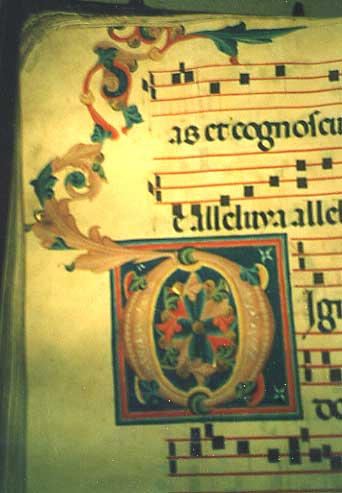 as et cognoſcu
e alleluya allel
O
do